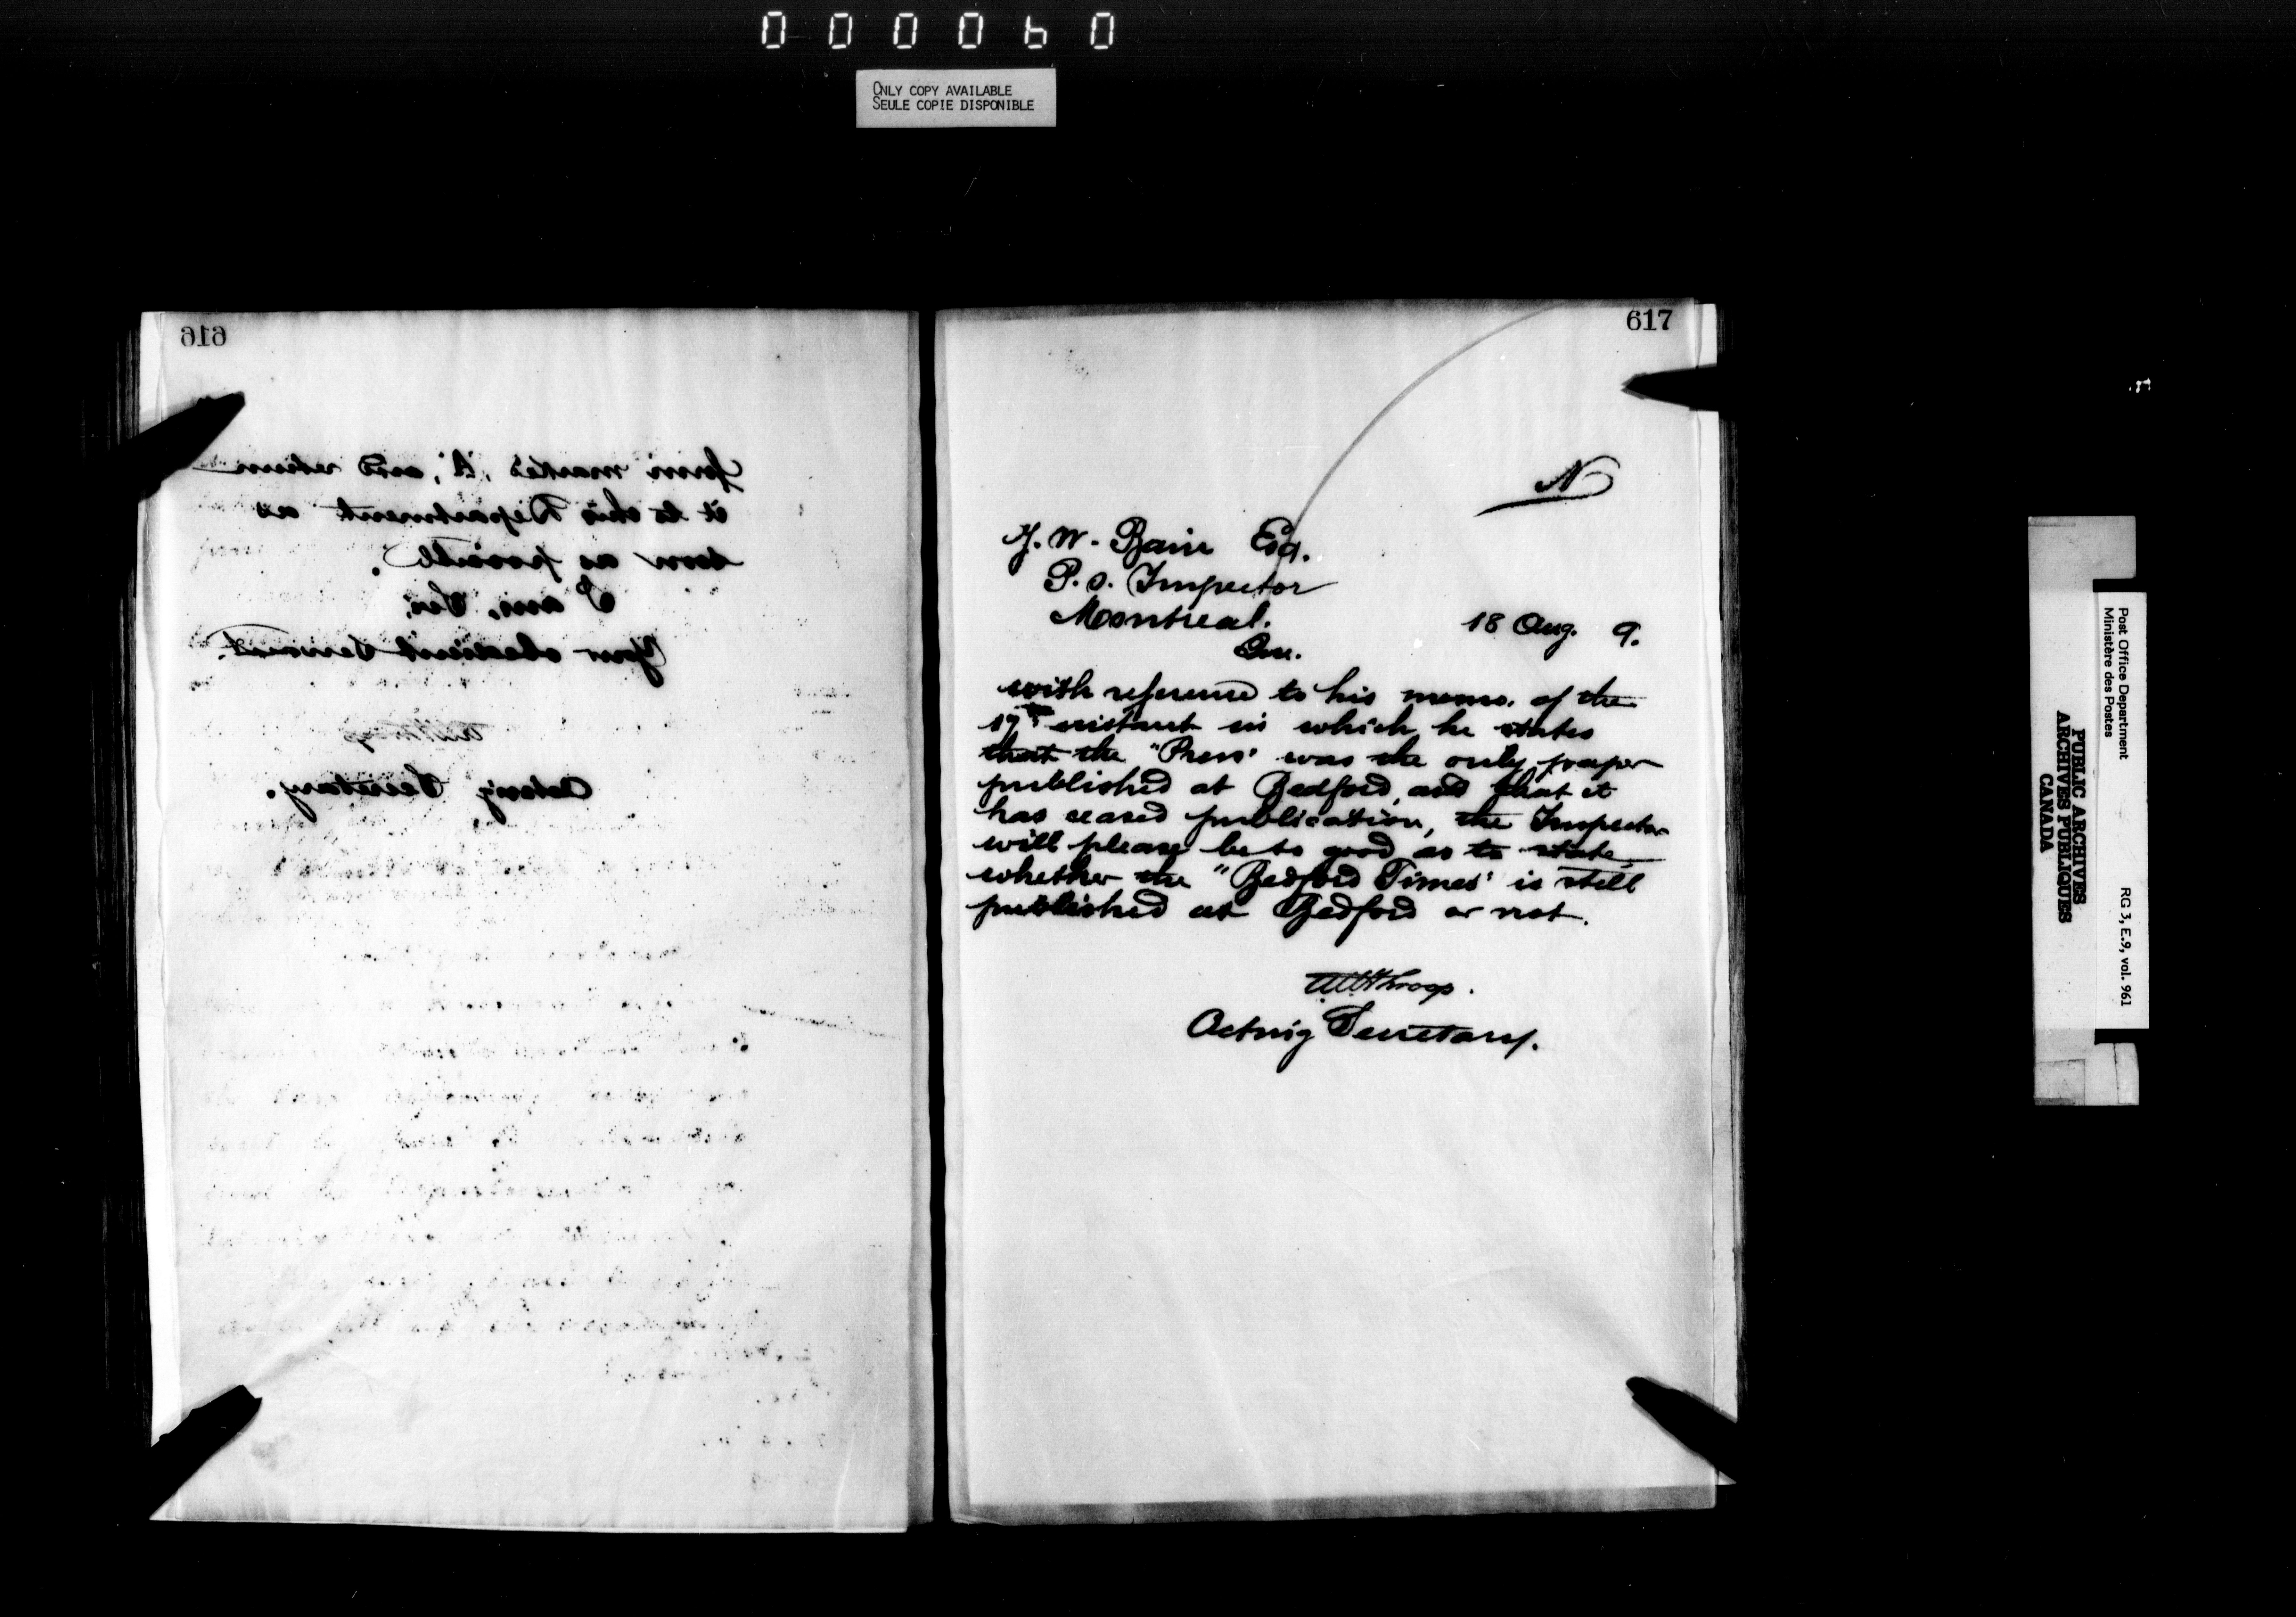 000060
ONLY COPY AVAILABLE
SEULE COPIE DISPONIBLE
616
form marked "A", and return
it to this Department as
soon as possible.
I am, Sir,
Your obedient Servant.
Acting Secretary.
617
N
J. W. Bain Esq.
P. O. Inspector
Montreal.
Que.
18 Aug. 9.
with reference to his memo. of the
17th instant in which he states
that the "Press" was the only paper
published at Bedford, and that it
has ceased publication, the Inspector
will please be so good as to state
whether the "Bedford Times" is still
published at Bedford or not.
Acting Secretary.
Post Office Department
Ministère des Postes
RG 3, E.9, vol. 961
PUBLIC ARCHIVES
ARCHIVES PUBLIQUES
CANADA